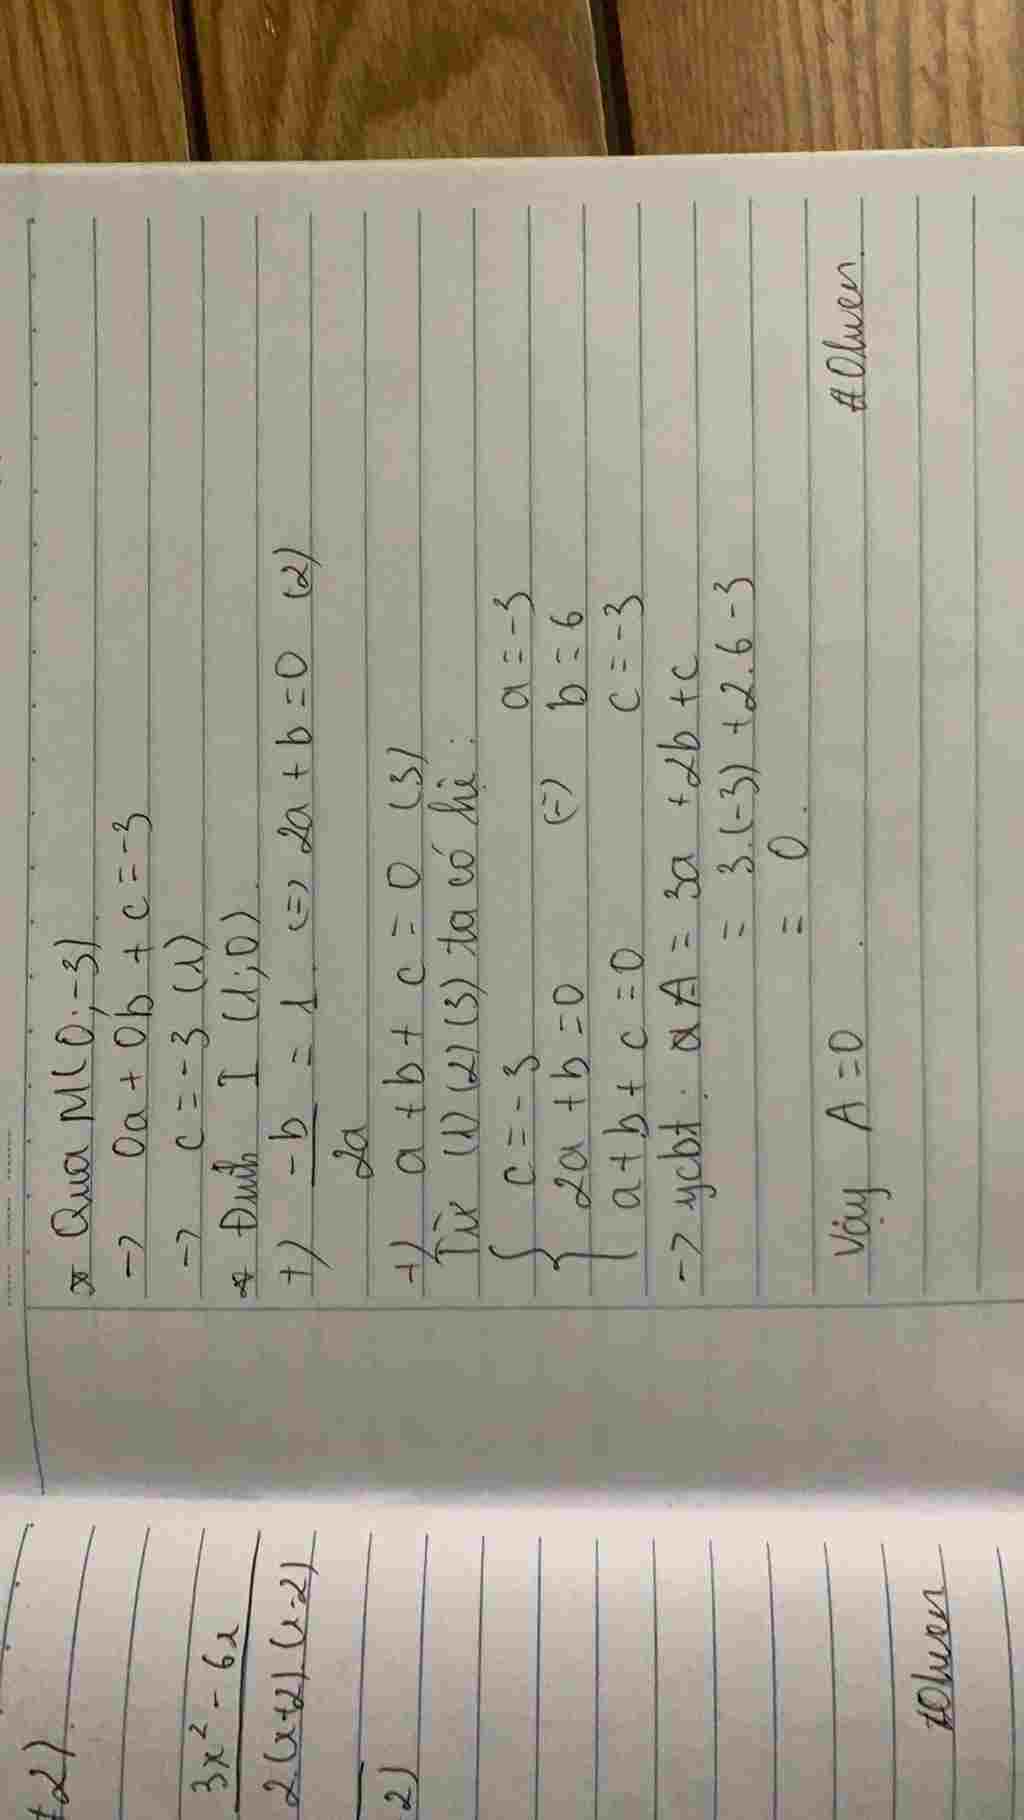 * Qua M(0;-3)
-> 0a + 0b + c = -3
-> c = -3 (1)
* Đỉnh I (1;0)
+) -b/2a = 1 <=> 2a + b = 0 (2)
+) a + b + c = 0 (3)
Từ (1)(2)(3) ta có hệ:
{ c = -3 a = -3
{ 2a + b = 0 (=) b = 6
{ a + b + c = 0 c = -3
-> ycbt: A = 3a + 2b + c
= 3.(-3) + 2.6 - 3
= 0.
Vậy A = 0.
#Olwen
+2)
3x² - 6x
2.(x+2)(x-2)
2)
#Olwen